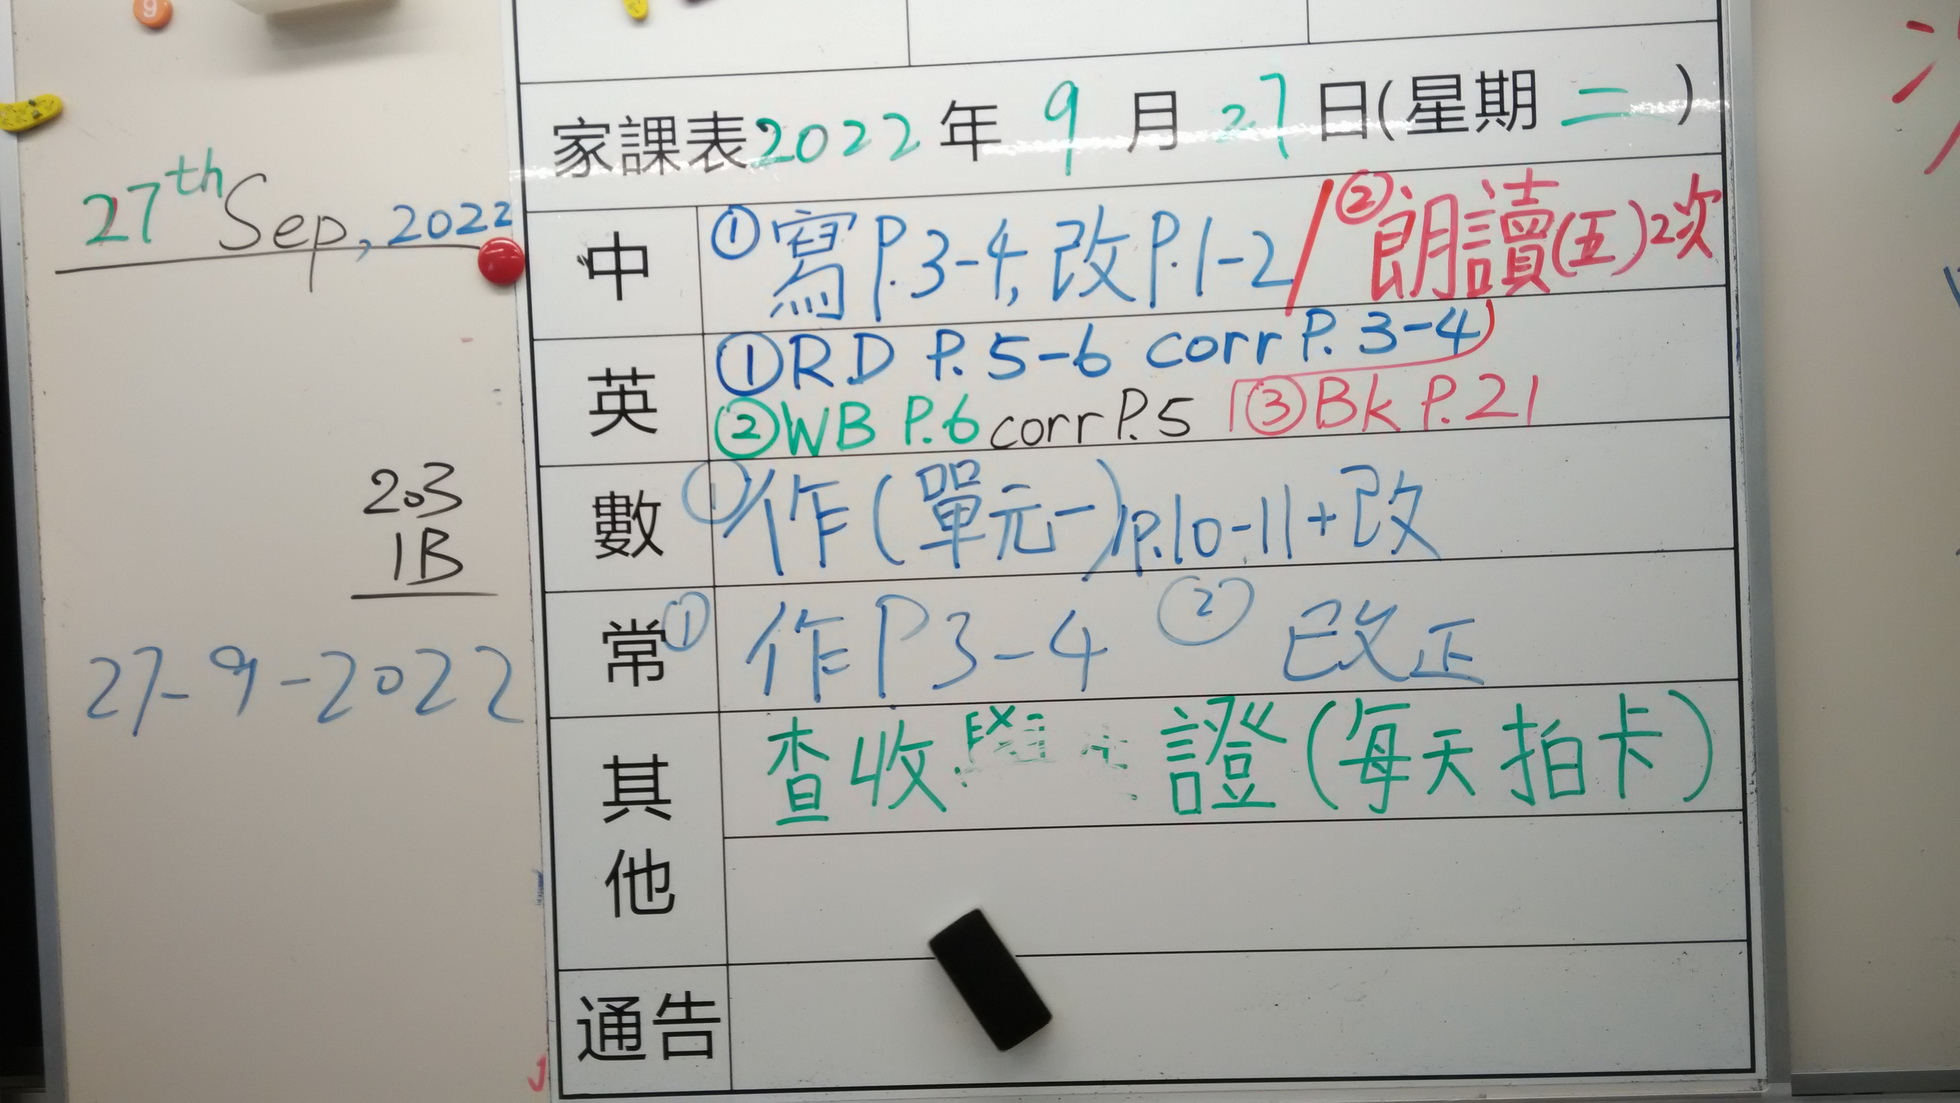 27th Sep, 2022
203
1B
27-9-2022
家課表2022年9月27日(星期二)
中 ①寫P.3-4,改P.1-2/②朗讀(五)2次
英 ①RD P.5-6 corr P.3-4
②WB P.6 corr P.5 ③Bk P.21
數 ①作(單元一)P.10-11+改
常 ①作P3-4 ②改正
其他 查收 證(每天拍卡)
通告
9